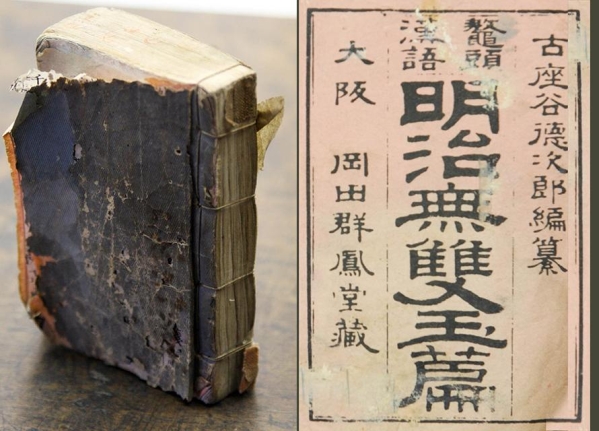 古座谷德次郎編纂
鼇頭
漢語
明治無雙玉篇
大阪　岡田群鳳堂藏